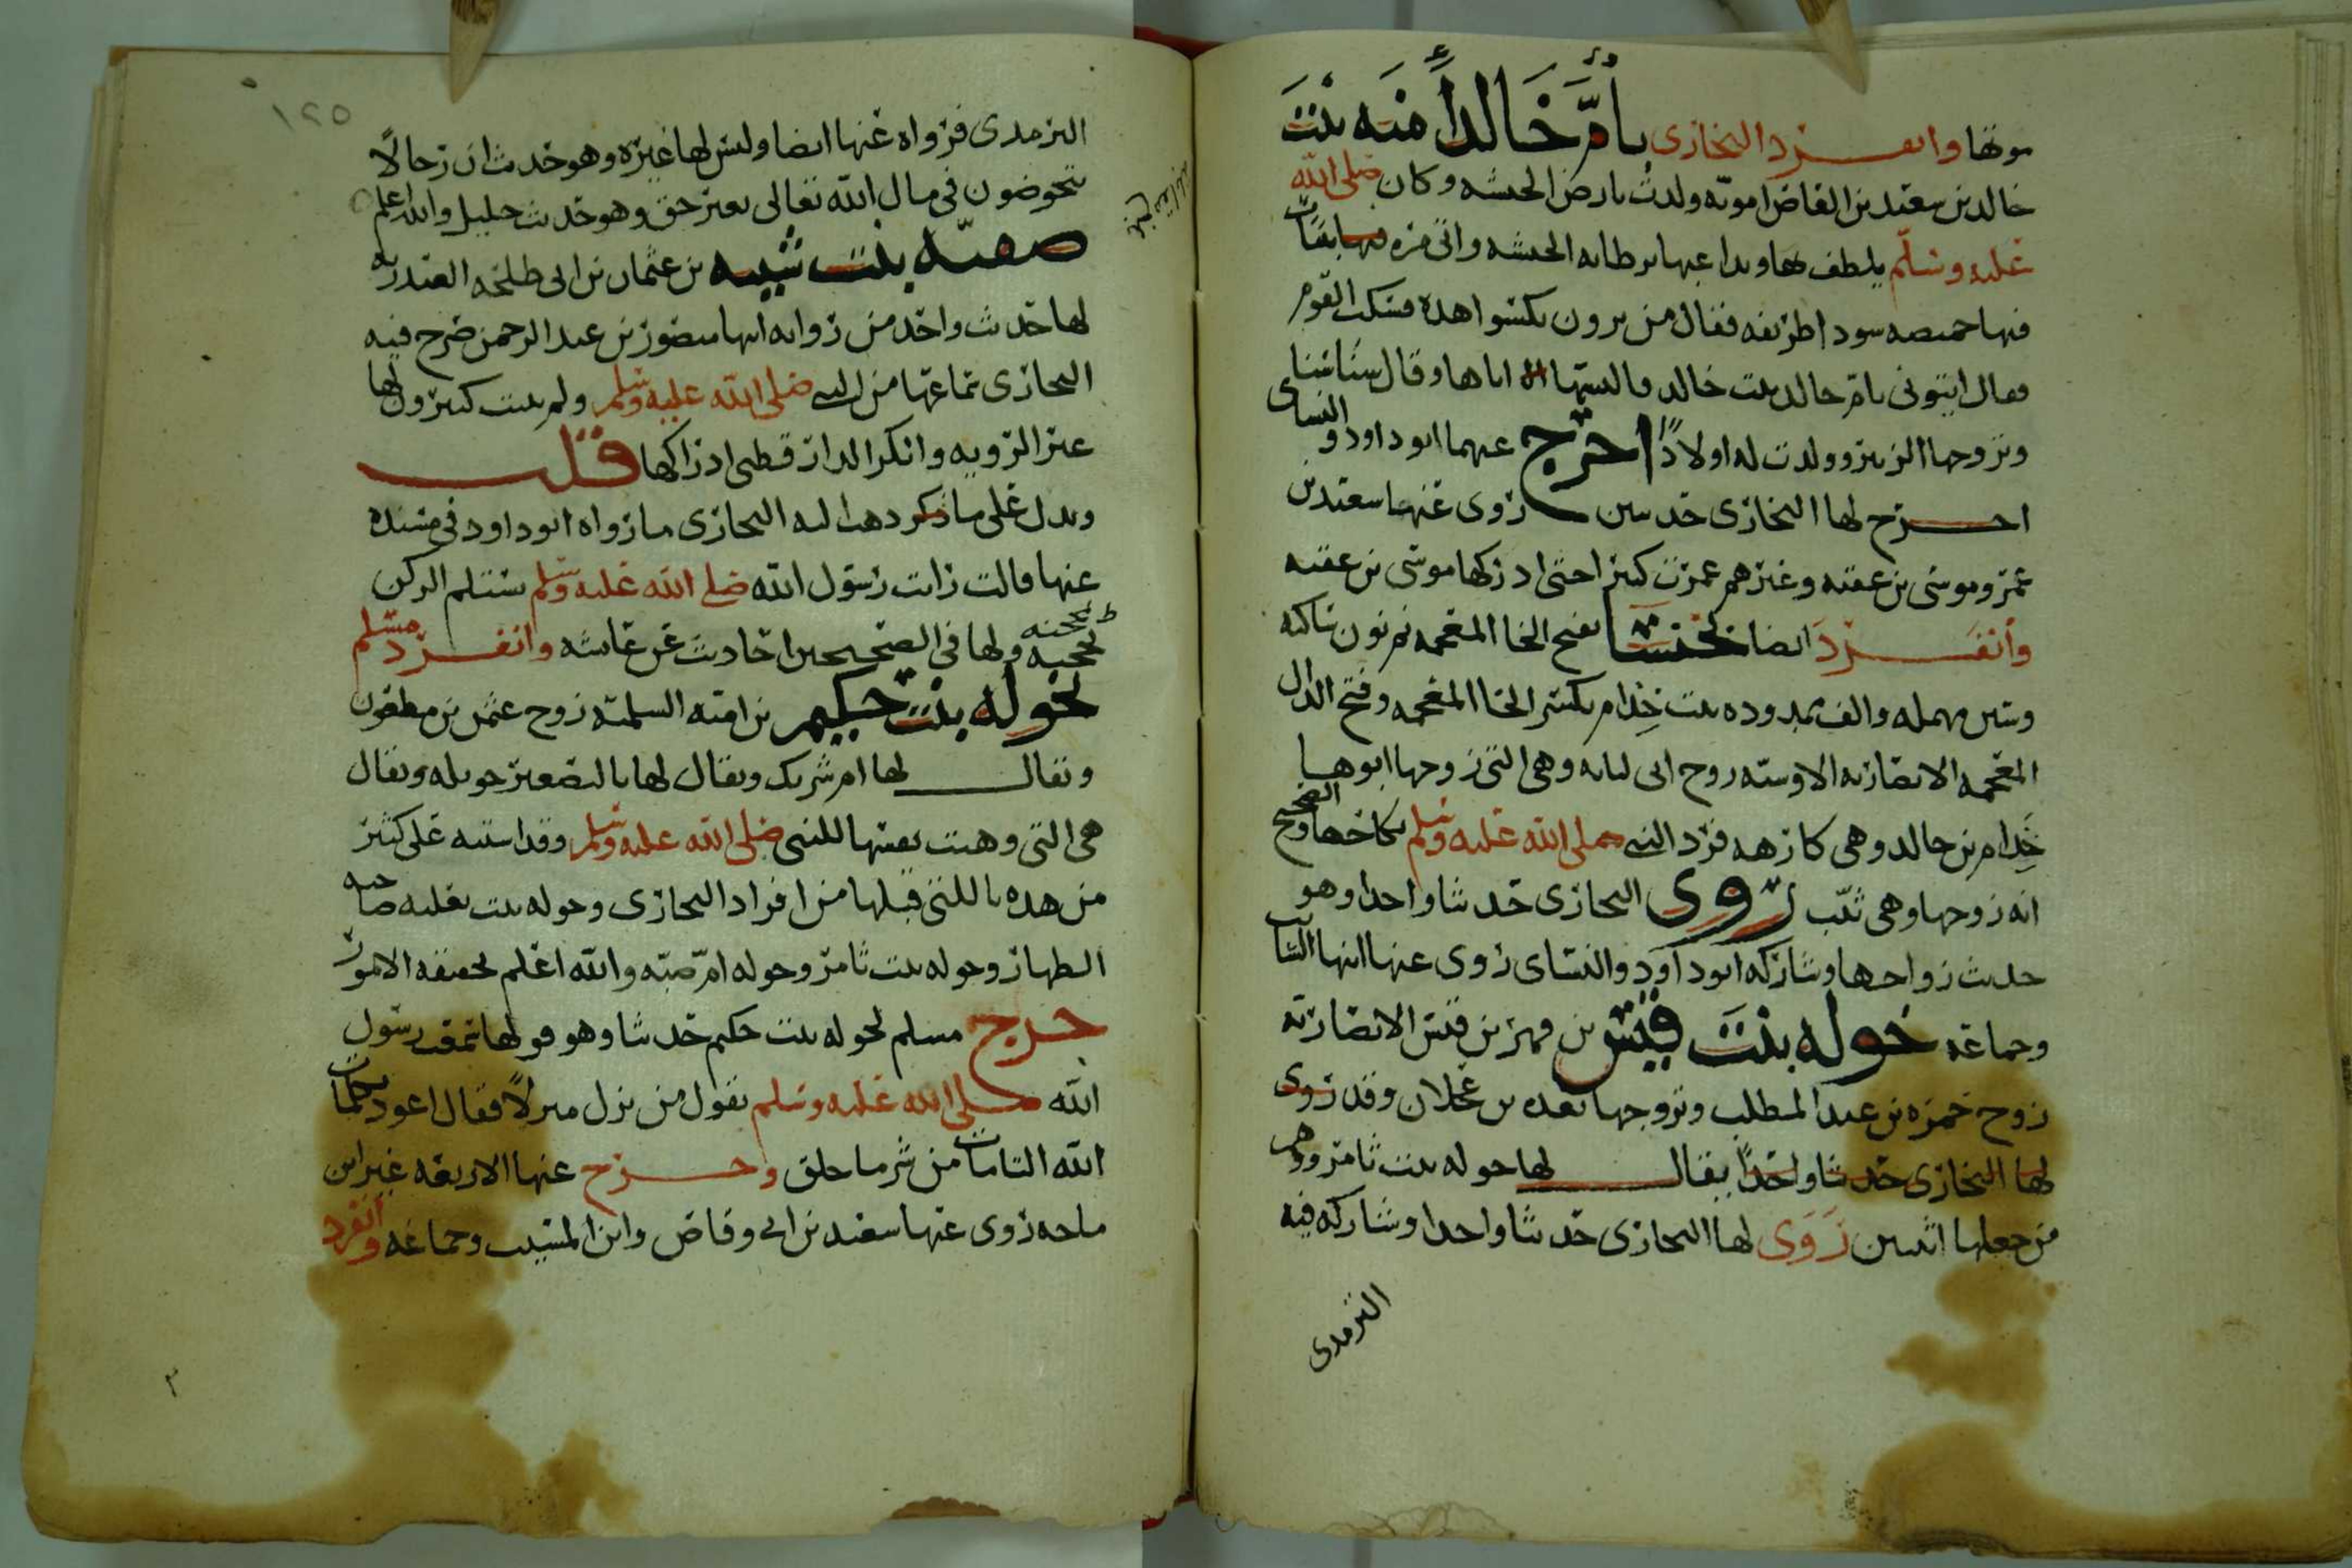 موتها وانفرد البخاري بأم خالد أمنه بنت
خالد بن سعيد بن العاص امويه ولدت بارض الحبشه وكان صلى الله
عليه وسلم يلطف بها ويداعبها برطانه الحبشه واتي مره بثياب
فيها خميصه سودا طريفه فقال من ترون نكسوا هذه فسكت القوم
فقال ايتوني بام خالد بنت خالد فالبسها اياها وقال سناسنا
وتزوجها الزبير وولدت له اولادًا اخرج عنهما ابو داود والنساى
اخرج لها البخاري حديثين روى عنها سعيد بن
عمرو وموسى بن عقبه وغيرهم عمرت كثيرا حتى ادركها موسى بن عقبه
وانفرد ايضا بخنسا بفتح الخا المعجمه ثم نون ساكنه
وسين مهمله والف ممدوده بنت خِذام بكسر الخا المعجمه وفتح الذال
المعجمه الانصاريه الاوسيه زوج ابى لبابه وهى التى زوجها ابوها
خِذام بن خالد وهى كارهه فرد النبي صلى الله عليه وسلم نكاحها والصحيح
انه زوجها وهى ثيّب روى البخارى حديثا واحدا وهو
حديث زواجها وشاركه ابو داود والنساى روى عنها ابنها السايب
وجماعه خوله بنت قيس بن فهر بن قيس الانصاريه
زوج حمزه بن عبد المطلب وتزوجها بعده بن عجلان وقد روى
لها البخارى حديثا واحدًا يقال لها خوله بنت ثامر ووهم
من جعلها اثنتين رَوَى لها البخارى حديثا واحدا وشاركه فيه
الترمدى
١٢٥
الترمدى فرواه عنها ايضا وليس لها غيره وهو حديث ان رجالًا
يتخوضون في مال الله تعالى بغير حق وهو حديث جليل والله اعلم
صفيّه بنت شيبه بن عثمان بن ابى طلحه العبدريه
لها حديث واحد من روايه ابنها منصور بن عبد الرحمن صرح فيه
البخارى بسماعها من النبي صلى الله عليه وسلم ولم يثبت كثيرون لها
غير الرويه وانكر الدارقطنى ادراكها قلت
ويدل على ما ذكر دهب اليه البخارى ما رواه ابو داود في مسنده
عنها قالت رايت رسول الله صلى الله عليه وسلم يستلم الركن
بمحجنه ولها في الصحيحين احاديث عن عايشه وانفرد مسلم
بخوله بنت حكيم بن اميه السلميه زوج عثمن بن مظعون
ويقال لها ام شريك ويقال لها بالتصغير خويله ويقال
هى التى وهبت نفسها للنبى صلى الله عليه وسلم وقد اشتبه على كثير
من هذه باللتى قبلها من افراد البخارى وخوله بنت ثعلبه صاحبه
الظهار وخوله بنت ثامر وخوله امّ صبيّه والله اعلم بحقيقه الامور
خرج مسلم لخوله بنت حكيم حديثا وهو قولها سمعت رسول
الله صلى الله عليه وسلم يقول من نزل منزلًا فقال اعوذ بكلمات
الله التامات من شر ما خلق وخرج عنها الاربعه غير ابن
ماجه روى عنها سعيد بن ابى وقاص وابن المسيب وجماعه وانفرد
٣